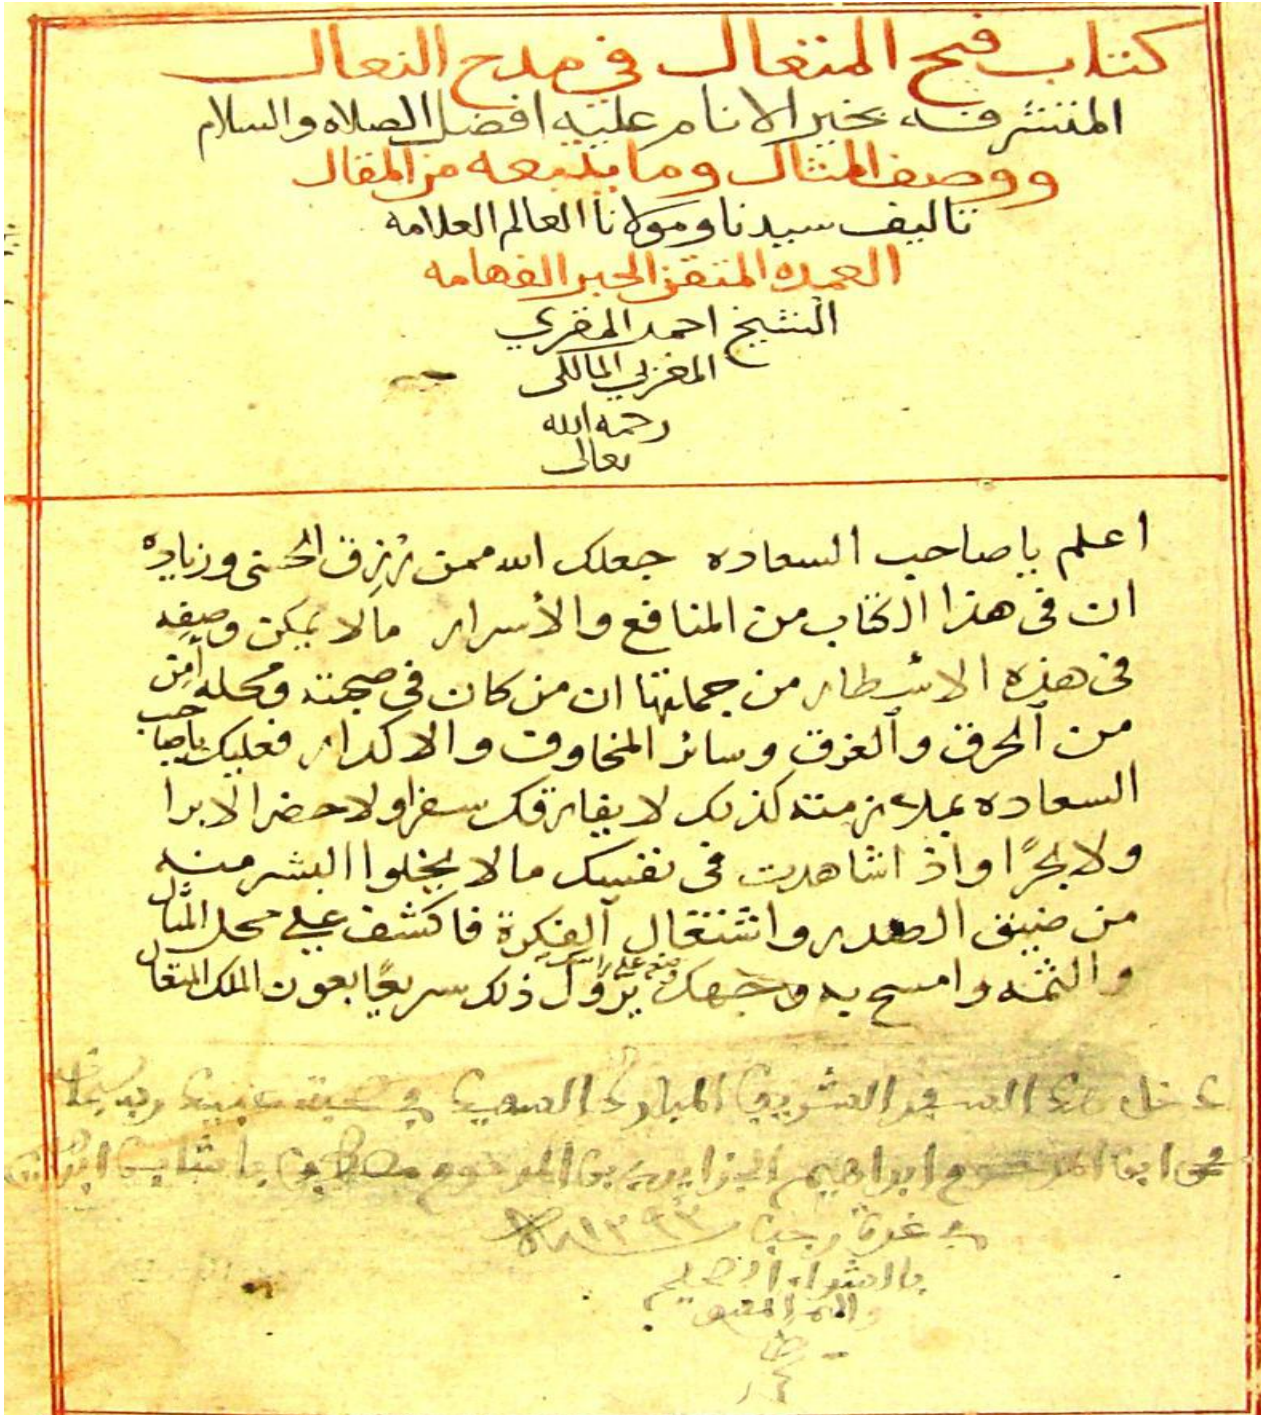 كتاب فتح المتعال في مدح النعال
المتشرفه بخير الانام عليه افضل الصلاه والسلام
ووصف المثال وما يتبعه من المقال
تاليف سيدنا ومولانا العالم العلامه
العمده المتقن الحبر الفهامه
الشيخ احمد المقري
المغربي المالكى
رحمه الله
تعالى
اعلم ياصاحب السعاده جعلك الله ممن رُزِق الحسنى وزياده
ان فى هذا الكتاب من المنافع والأسرار مالا يمكن وصفِه
فى هذه الاسطار من جملتها ان من كان فى صحبته ومحله أمِن
من الحرق والغرق وسائر المخاوف والاكدار فعليك ياصاحب
السعاده بملازمته كذلك لا يفارقك سفرا ولا حضرا لا برا
ولا بحرًا واذا شاهدت فى نفسك مالا يخلوا البشر منه
من ضيق الصدر واشتغال الفكرة فاكشف على محل المثال
والثمه وامسح به وجهك وضعه على راسك يزول ذلك سريعًا بعون الملك المتعال
دخل هذا السفر الشريف المبارك السعيد في
ابن المرحوم ابراهيم الجزايري بن المرحوم
في غرة رجب ١٢٩٣
بالشراء